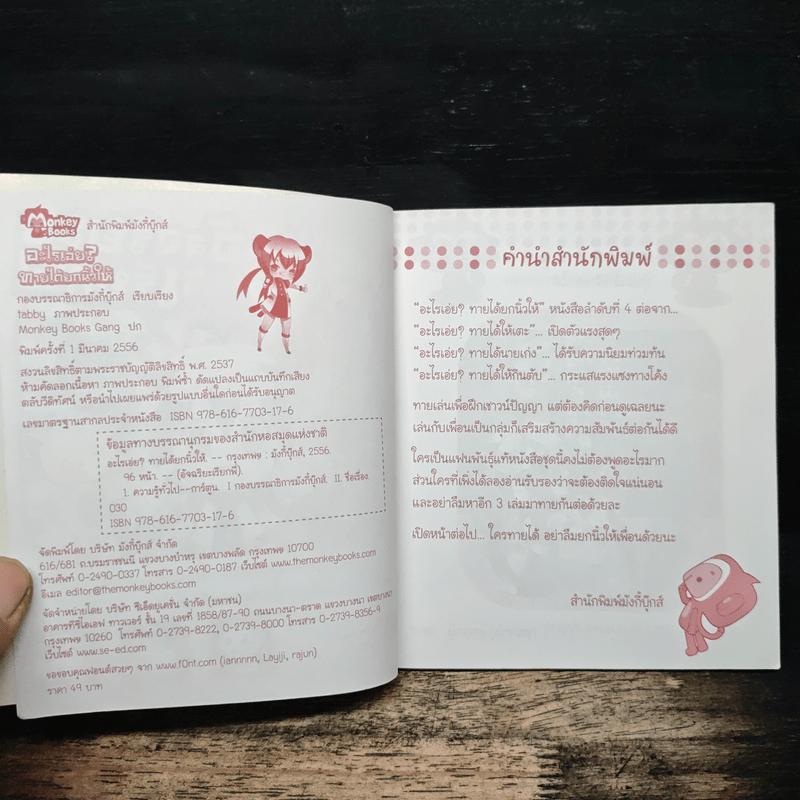 Monkey Books
สำนักพิมพ์มังกี้บุ๊กส์
อะไรเอ่ย?
ทายได้ยกนิ้วให้
กองบรรณาธิการมังกี้บุ๊กส์ เรียบเรียง
tabby ภาพประกอบ
Monkey Books Gang ปก
พิมพ์ครั้งที่ 1 มีนาคม 2556
สงวนลิขสิทธิ์ตามพระราชบัญญัติลิขสิทธิ์ พ.ศ. 2537
ห้ามคัดลอกเนื้อหา ภาพประกอบ พิมพ์ซ้ำ ดัดแปลงเป็นแถบบันทึกเสียง
ตลับวีดิทัศน์ หรือนำไปเผยแพร่ด้วยรูปแบบอื่นใดก่อนได้รับอนุญาต
เลขมาตรฐานสากลประจำหนังสือ ISBN 978-616-7703-17-6
ข้อมูลทางบรรณานุกรมของสำนักหอสมุดแห่งชาติ
อะไรเอ่ย? ทายได้ยกนิ้วให้. -- กรุงเทพฯ : มังกี้บุ๊กส์, 2556.
96 หน้า. -- (อัจฉริยะเรียกพี่).
1. ความรู้ทั่วไป--การ์ตูน. I กองบรรณาธิการมังกี้บุ๊กส์. II. ชื่อเรื่อง.
030
ISBN 978-616-7703-17-6
จัดพิมพ์โดย บริษัท มังกี้บุ๊กส์ จำกัด
616/681 ถ.บรมราชชนนี แขวงบางบำหรุ เขตบางพลัด กรุงเทพฯ 10700
โทรศัพท์ 0-2490-0337 โทรสาร 0-2490-0187 เว็บไซต์ www.themonkeybooks.com
อีเมล editor@themonkeybooks.com
จัดจำหน่ายโดย บริษัท ซีเอ็ดยูเคชั่น จำกัด (มหาชน)
อาคารทีซีไอเอฟ ทาวเวอร์ ชั้น 19 เลขที่ 1858/87-90 ถนนบางนา-ตราด แขวงบางนา เขตบางนา
กรุงเทพฯ 10260 โทรศัพท์ 0-2739-8222, 0-2739-8000 โทรสาร 0-2739-8356-9
เว็บไซต์ www.se-ed.com
ขอขอบคุณฟอนต์สวยๆ จาก www.f0nt.com (iannnnn, Layiji, rajun)
ราคา 49 บาท
คำนำสำนักพิมพ์
"อะไรเอ่ย? ทายได้ยกนิ้วให้" หนังสือลำดับที่ 4 ต่อจาก...
"อะไรเอ่ย? ทายได้ให้เตะ"... เปิดตัวแรงสุดๆ
"อะไรเอ่ย? ทายได้นายเก่ง"... ได้รับความนิยมท่วมท้น
"อะไรเอ่ย? ทายได้ให้กินตับ"... กระแสแรงแซงทางโค้ง
ทายเล่นเพื่อฝึกเชาวน์ปัญญา แต่ต้องคิดก่อนดูเฉลยนะ
เล่นกับเพื่อนเป็นกลุ่มก็เสริมสร้างความสัมพันธ์ต่อกันได้ดี
ใครเป็นแฟนพันธุ์แท้หนังสือชุดนี้คงไม่ต้องพูดอะไรมาก
ส่วนใครที่เพิ่งได้ลองอ่านรับรองว่าจะต้องติดใจแน่นอน
และอย่าลืมหาอีก 3 เล่มมาทายกันต่อด้วยละ
เปิดหน้าต่อไป... ใครทายได้ อย่าลืมยกนิ้วให้เพื่อนด้วยนะ
สำนักพิมพ์มังกี้บุ๊กส์